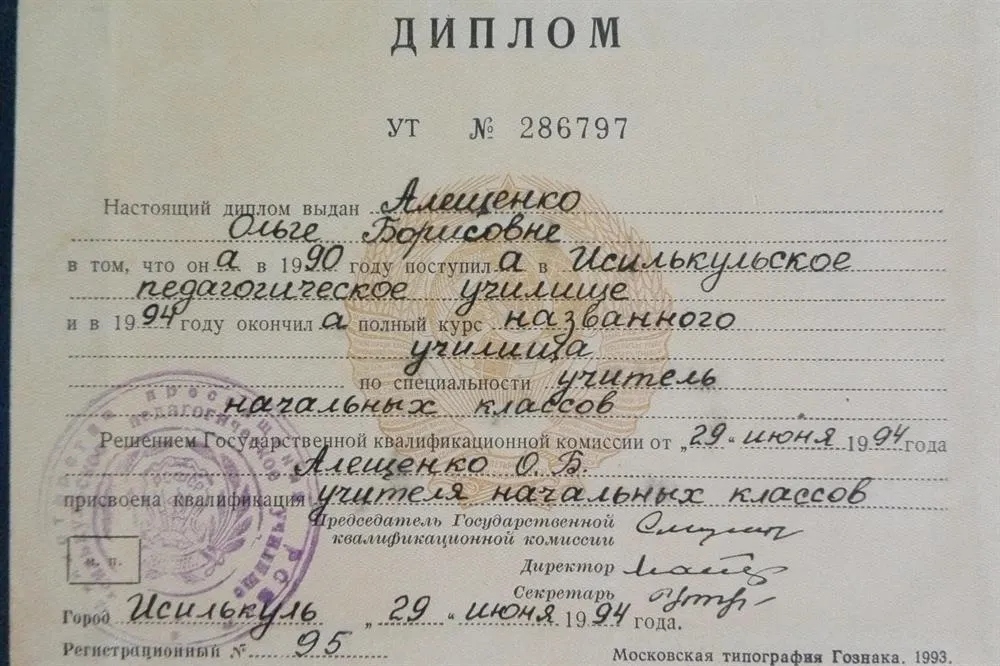 ДИПЛОМ
УТ № 286797
Настоящий диплом выдан Алещенко
Ольге Борисовне
в том, что он а в 1990 году поступил а в Исилькульское
педагогическое училище
и в 1994 году окончил а полный курс названного
училища
по специальности учитель
начальных классов
Решением Государственной квалификационной комиссии от „29“ июня 1994 года
Алещенко О.Б.
присвоена квалификация учителя начальных классов
Председатель Государственной
квалификационной комиссии
Директор
Секретарь
м. п.
Город Исилькуль „29“ июня 1994 года.
Регистрационный № 95
Московская типография Гознака. 1993.